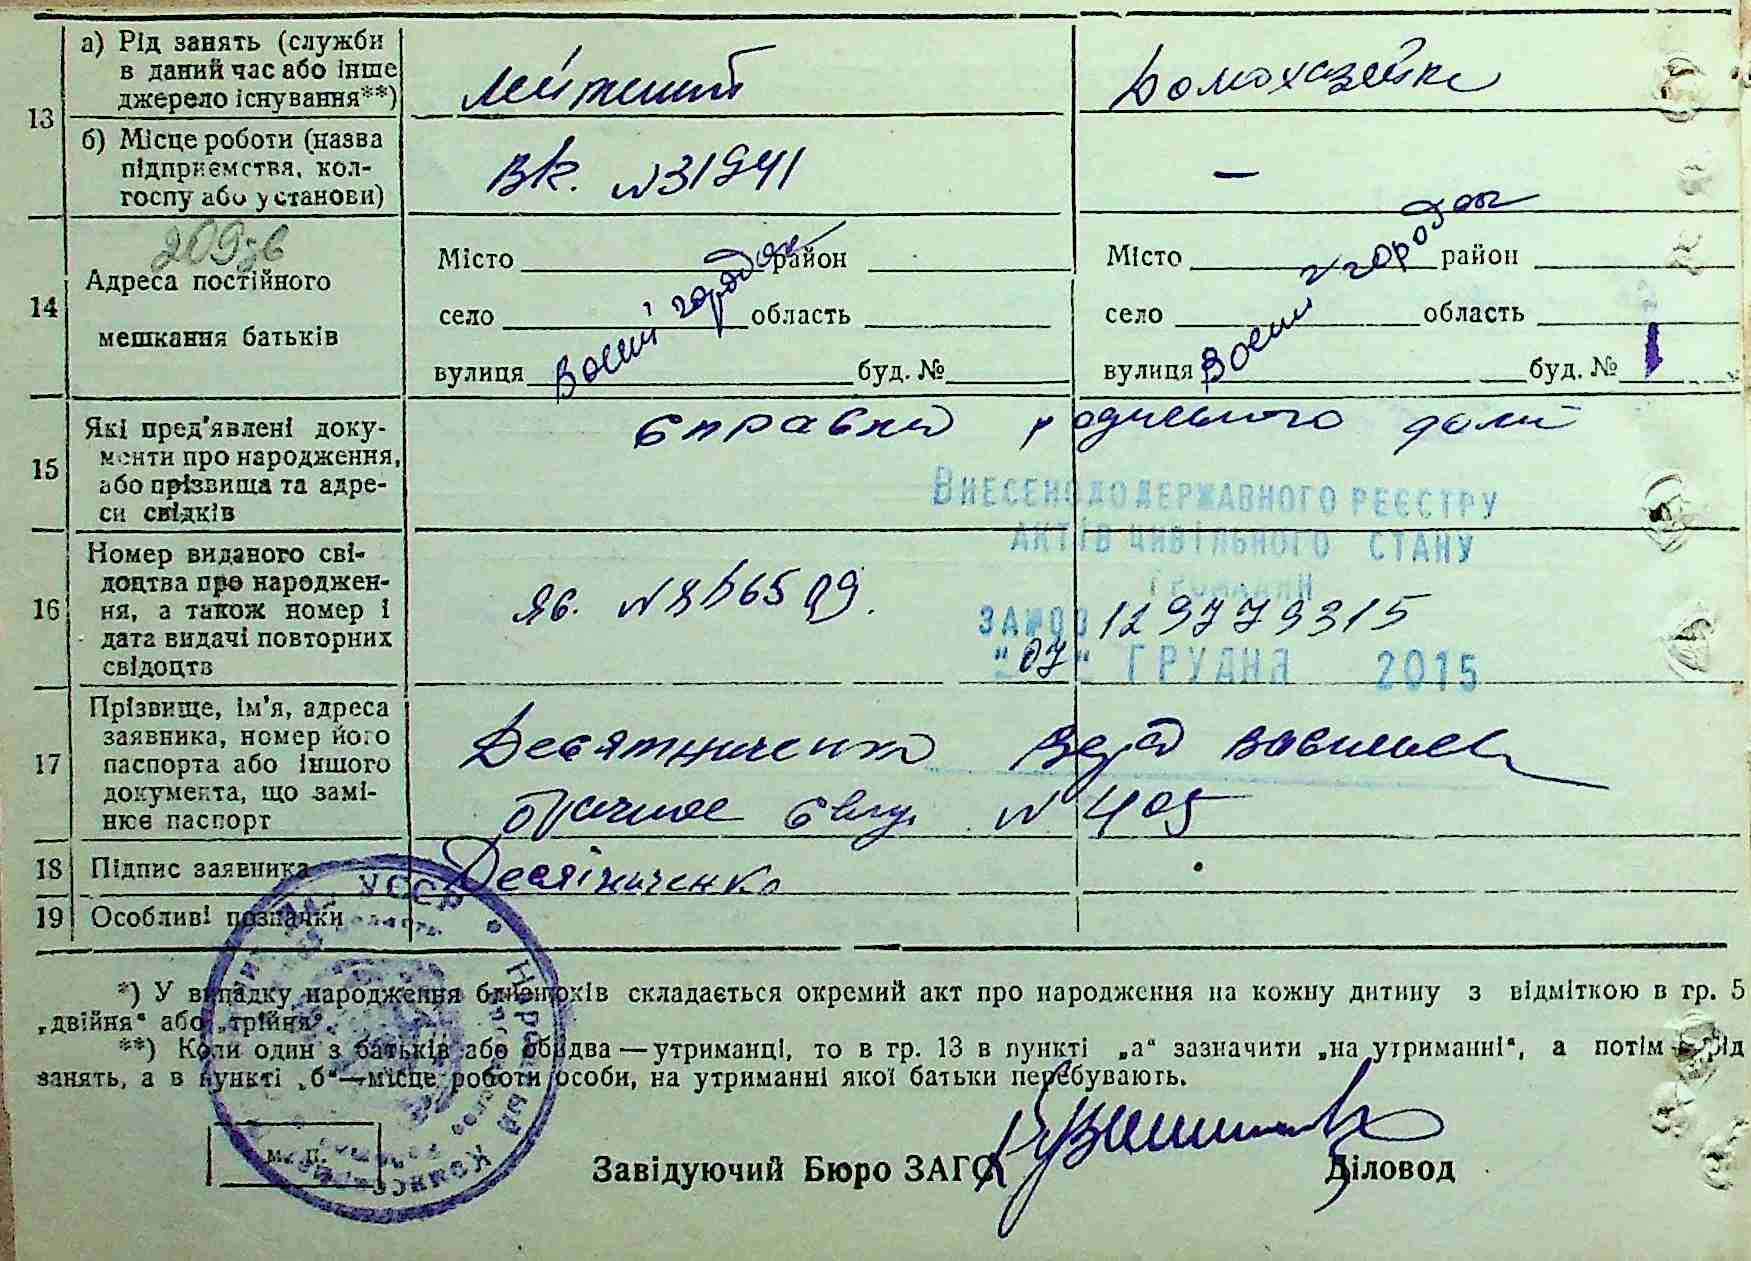 13
а) Рід занять (служби
в даний час або інше
джерело існування**)
Домохазяйка
б) Місце роботи (назва
підприємства, кол-
госпу або установи)
Вк. №31941
—
14
Адреса постійного
мешкання батьків
Місто район
село область
вулиця буд. №
Воєни городок
Місто район
село область
вулиця буд. №
Воєни городок
15
Які пред'явлені доку-
менти про народження,
або прізвища та адре-
си свідків
справка родильного дома
ВНЕСЕНО ДО ДЕРЖАВНОГО РЕЄСТРУ
АКТІВ ЦИВІЛЬНОГО СТАНУ
ГРОМАДЯН
16
Номер виданого сві-
доцтва про народжен-
ня, а також номер і
дата видачі повторних
свідоцтв
ЗА №00 129779315
"07" ГРУДНЯ 2015
17
Прізвище, ім'я, адреса
заявника, номер його
паспорта або іншого
документа, що замі-
нює паспорт
Десятниченко
N 405
18 Підпис заявника
Десятниченко
19 Особливі позначки
УССР * Народный Комиссариат
*) У випадку народження близнюків складається окремий акт про народження на кожну дитину з відміткою в гр. 5
„двійня“ або „трійня“.
**) Коли один з батьків або обидва — утриманці, то в гр. 13 в пункті „а“ зазначити „на утриманні“, а потім рід
занять, а в пункті „б“ — місце роботи особи, на утриманні якої батьки перебувають.
м. п.
Завідуючий Бюро ЗАГС Діловод